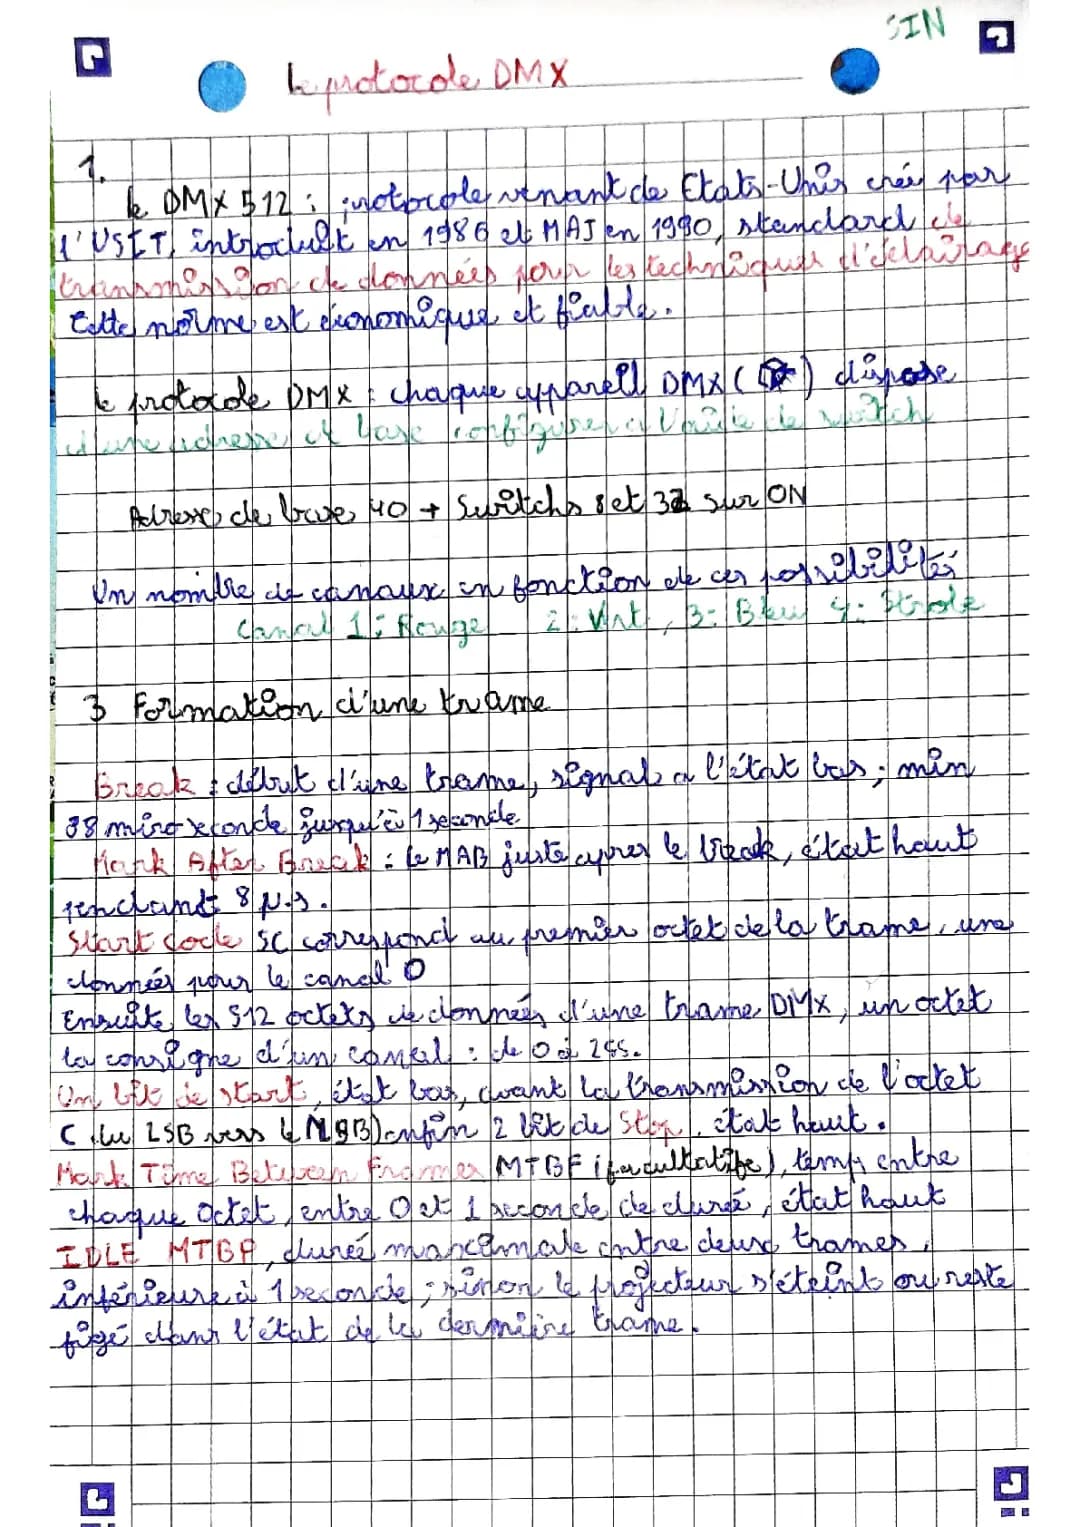 SIN
Le protocole DMX
1.
le DMX 512 : protocole venant de Etats-Unis créé par
l'USIT, introduit en 1986 et MAJ en 1990, standard de
transmission de données pour les techniques d'éclairage
Cette norme est économique et fiable.
le protocole DMX : chaque appareil DMX ( ) dispose
d'une adresse de base configurer a l'aide de switch
Adresse de base 40 → Switchs 8 et 32 sur ON
Un nombre de canaux en fonction de ces possibilités
Canal 1 : Rouge 2 : Vert, 3 : Bleu 4 : Strobe
3 Formation d'une trame
Break : début d'une trame, signal a l'état bas ; min
88 micro seconde jusqu'à 1 seconde
Mark After Break : le MAB juste apres le break, état haut
pendant 8 µ.s.
Start Code SC correspond au premier octet de la trame, une
données pour le canal 0
Ensuite les 512 octets de données d'une trame DMX, un octet
la consigne d'un canal : de 0 à 255.
Un bit de start, état bas, avant la transmission de l'octet
( du LSB vers le MSB) enfin 2 bit de Stop, état haut.
Mark Time Between Frames MTBF (facultatife), temps entre
chaque Octet, entre 0 et 1 seconde de durée, état haut
IDLE MTBP, durée maximale entre deux trames,
inférieure à 1 seconde ; sinon le projecteur s'éteint ou reste
figé dans l'état de la dernière trame.